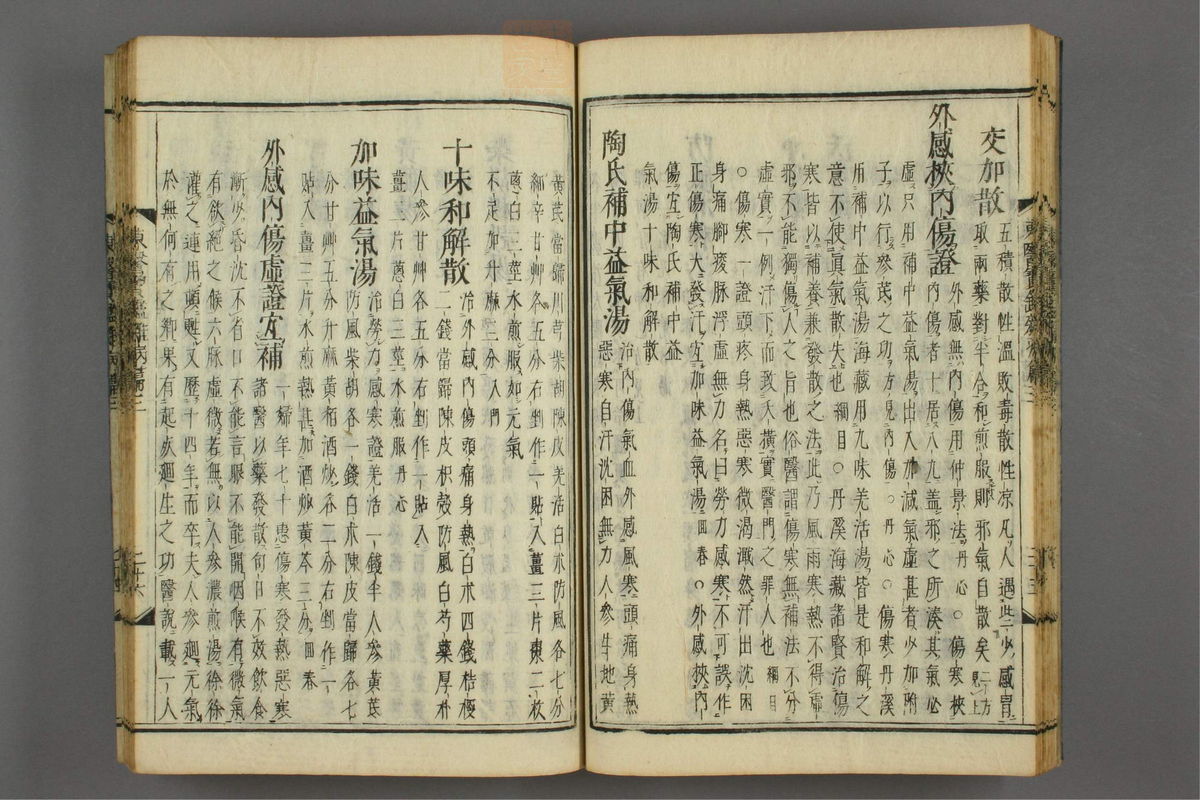 交加散 五積散性溫敗毒散性凉凡人遇些少感冒
取兩藥對半合和煎服則邪氣自散矣二方見上
外感挾內傷證 外感無內傷用仲景法丹心○傷寒挾
內傷者十居八九盖邪之所湊其氣必
虛只用補中益氣湯出入加減氣虛甚者少加附
子以行參芪之功方見內傷○丹心○傷寒丹溪
用補中益氣湯海藏用九味羌活湯皆是和解之
意不使眞氣散失也綱目○丹溪海藏諸賢治傷
寒皆以補養兼發散之法此乃風雨寒熱不得虛
邪不能獨傷人之旨也俗醫謂傷寒無補法不分
虛實一例汗下而致夭橫實醫門之罪人也綱目
○傷寒一證頭疼身熱惡寒微渴濈然汗出沈困
身痛腳痠脉浮虛無力名曰勞力感寒不可誤作
正傷寒大發汗宜加味益氣湯回春○外感挾內
傷宜陶氏補中益
氣湯十味和解散
陶氏補中益氣湯 治內傷氣血外感風寒頭痛身熱
惡寒自汗沈困無力人參生地黃
黃芪當歸川芎柴胡陳皮羌活白朮防風各七分
細辛甘艸各五分右剉作一貼入薑三片棗二枚
蔥白二莖水煎服如元氣
不足加升麻三分入門
十味和解散 治外感內傷頭痛身熱白朮四錢桔梗
二錢當歸陳皮枳殼防風白芍藥厚朴
人參甘艸各五分右剉作一貼入
薑三片蔥白三莖水煎服丹心
加味益氣湯 治勞力感寒證羌活一錢半人參黃芪
防風柴胡各一錢白朮陳皮當歸各七
分甘艸五分升麻黃栢酒炒各二分右剉作一
貼入薑三片水煎熱甚加酒炒黃芩三分回春
外感內傷虛證宜補 一婦年七十患傷寒發熱惡寒
諸醫以藥發散旬日不效飲食
漸少昏沈不省口不能言眼不能開咽喉有微氣
有欲絶之候六脉虛微若無以人參濃煎湯徐徐
灌之連用頭甦又歷十四年而卒夫人參廻元氣
於無何有之鄕果有起死廻生之功醫說載一人